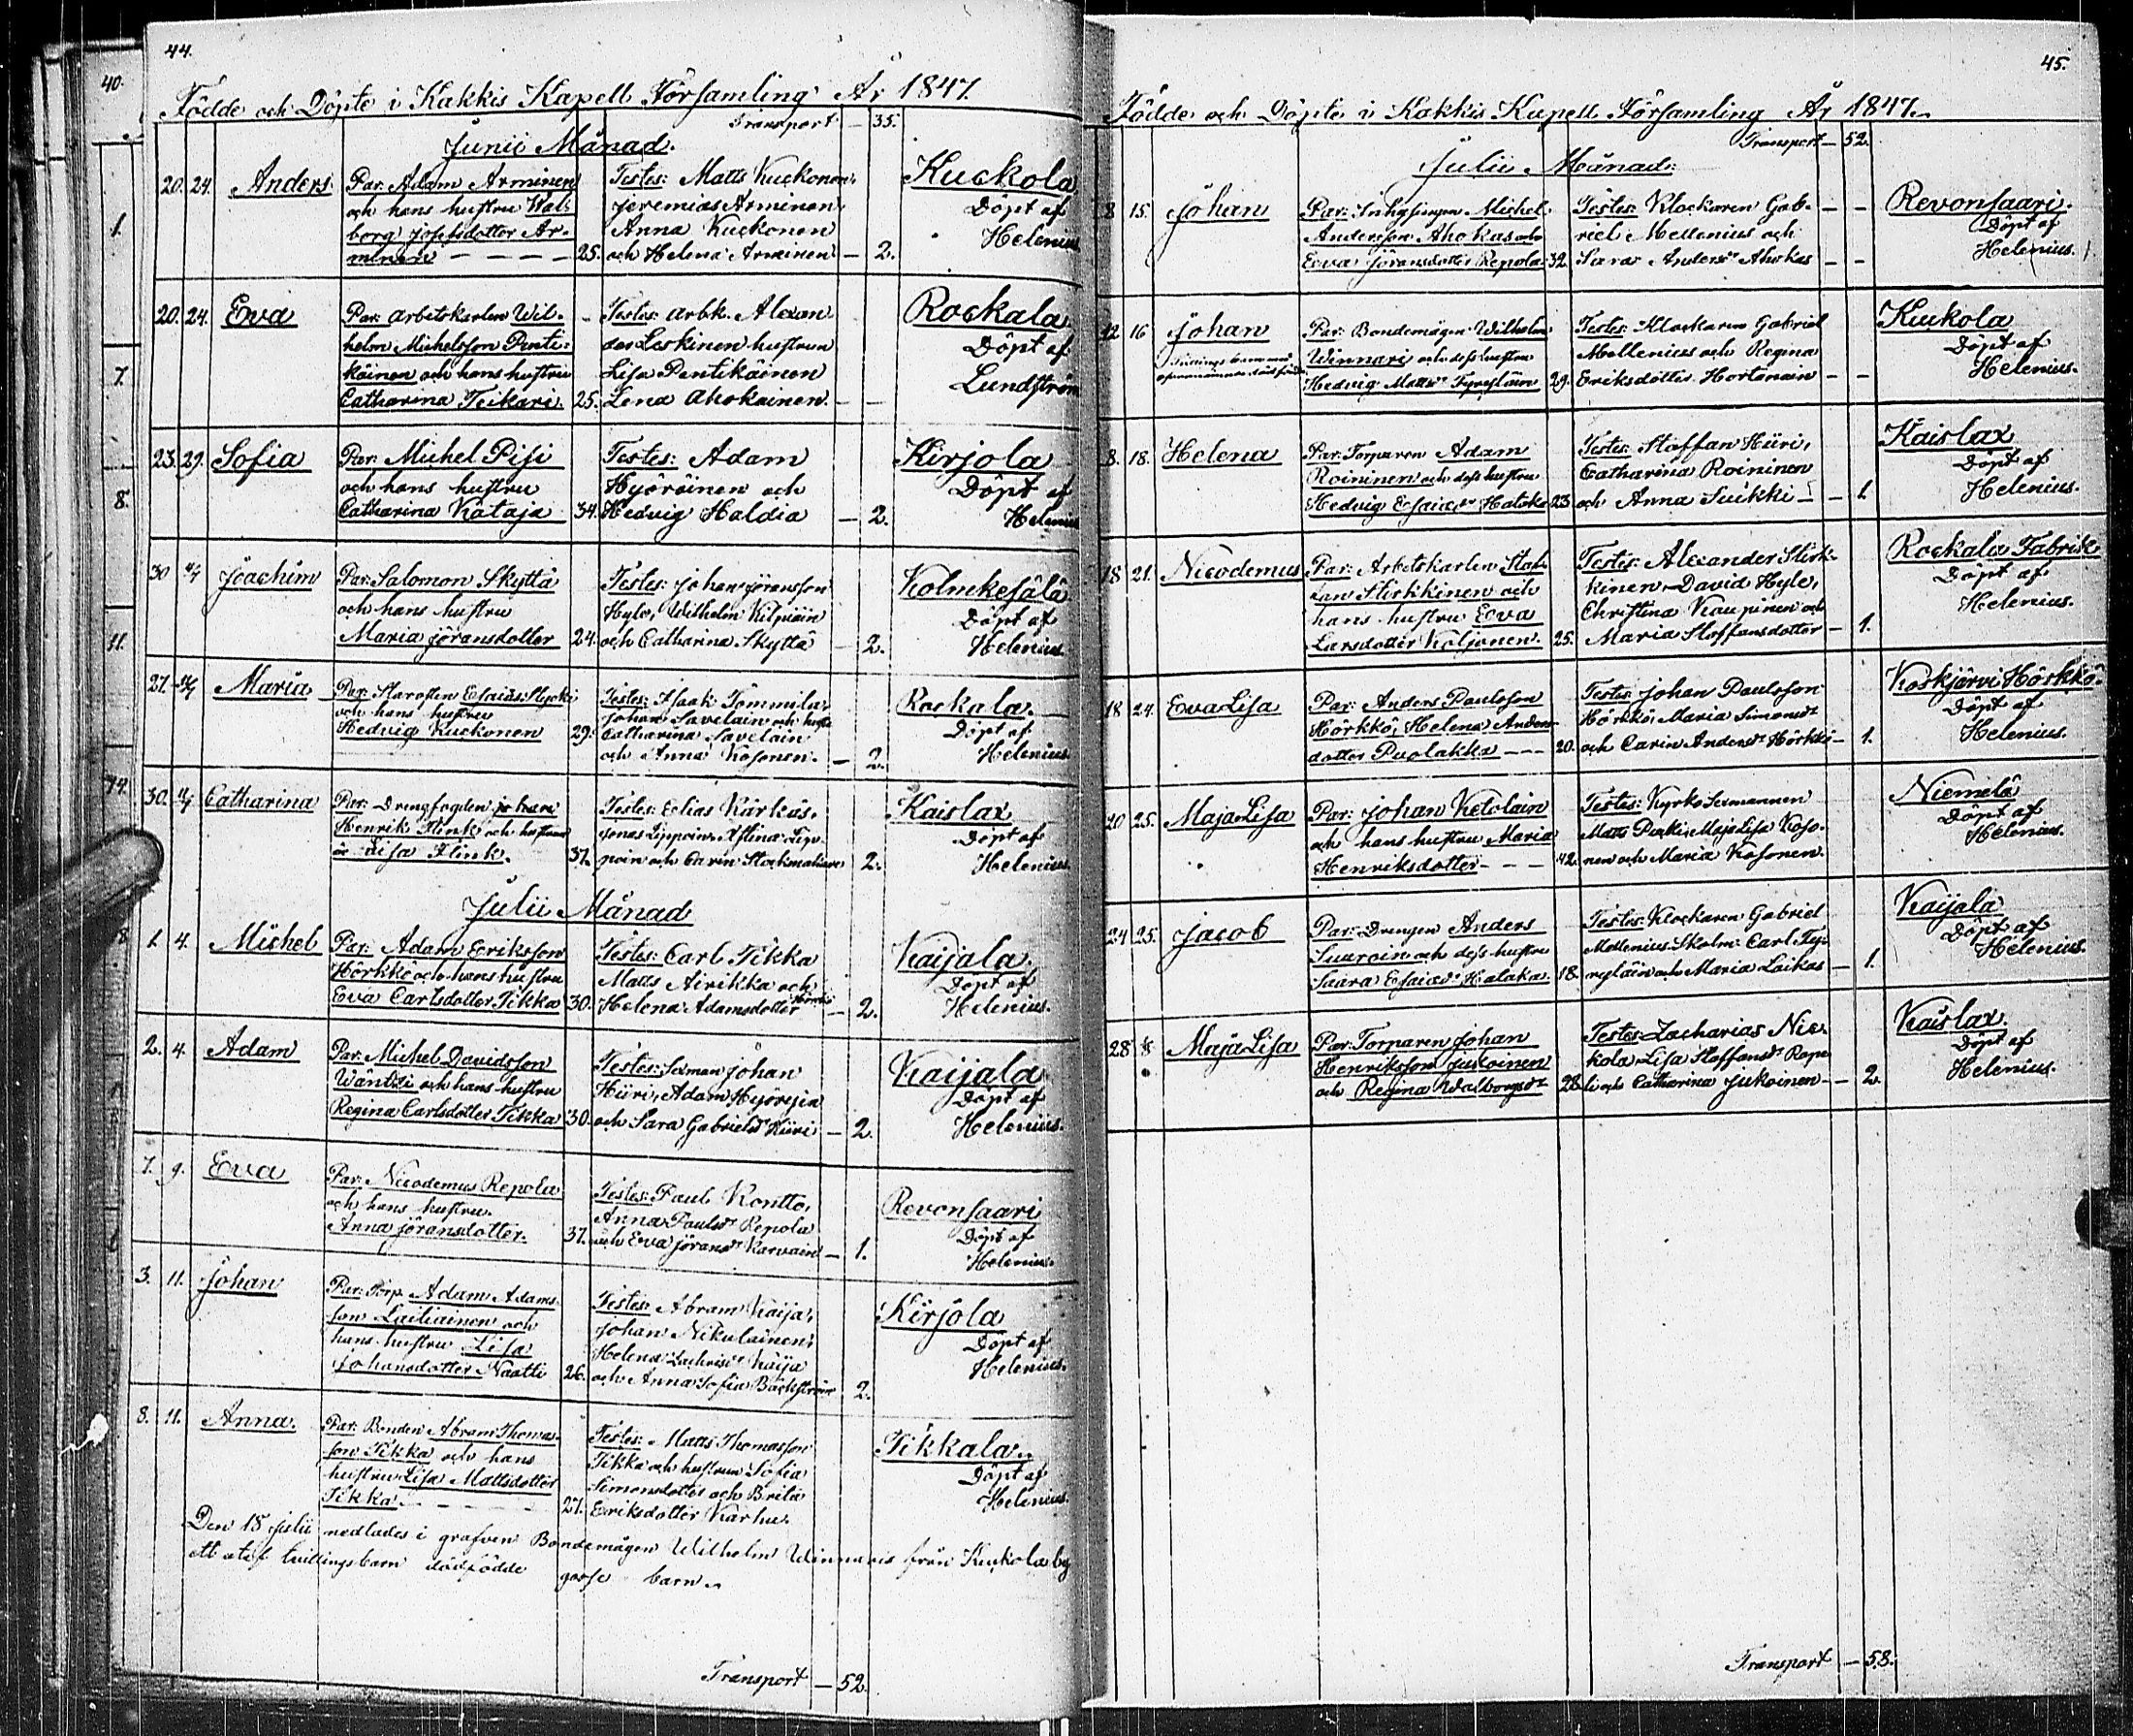 44.
40.
Födde och Döpte i Kakkis Kapell Församling År 1847.
Transport — 35.
Junii Månad.
20. 24. Anders. Par: Adam Arminen Testes: Matts Kuckonen, Kuckola
och hans hustru Wal- Jeremias Arminen, Döpt af
borg Josefsdotter Ar- Anna Kuckonen Helenius
minen — — — — 25. och Helena Arminen — 2.
20. 24. Eva Par: arbetskarlen Wil- Testes: arbk. Alexan Rockala
helm Michelsson Penti- der Leskinen hustrun Döpt af
käinen och hans hustru Lisa Pentikäinen Lundström
Catharina Teikari. 25. Lena Ahokainen. — —
23. 29. Sofia Par: Michel Pisi Testes: Adam Kirjola
och hans hustru Hyöröinen och Döpt af
Catharina Kataja 34. Hedvig Haldia — 2. Helenius
30 4/7 Joachim Par: Salomon Skyttä Testes: Johan Jöransson Kolmikesälä
och hans hustru Hyle, Wilhelm Kilpiäin Döpt af
Maria Jöransdotter 24. och Catharina Skyttä — 2. Helenius.
27. Maria Par: Starosten Esaias och hans hustru Testes: Isaak Tommila, Rockala.
Johan Savelain och hust Döpt af
Hedvig Kuckonen 29. Catharina Savelain Helenius
och Anna Kosonen. — 2.
30. 4/7 Catharina Par: Drengfogden Johan Testes: Elias Kärkäs, Kaislax
Henrik Flink och hustrun Jonas Lipponen, Stina Lip- Döpt af
Lisa Flink. 37. poin och Carin 2. Helenius
Julii Månad
1. 4. Michel Par: Adam Eriksson Testes: Carl Tikka Kaijala.
Hörkkö och hans hustru Matts Airikka och Döpt af
Eva Carlsdotter Tikka 30. Helena Adamsdotter Hörkkö — 2. Helenius.
2. 4. Adam Par: Michel Davidsson Testes: Sexman Johan Kaijala
Wäntti och hans hustru Hiiri, Adam Hyöryin Döpt af
Regina Carlsdotter Tikka 30. och Sara Gabrielsdr Hiiri — 2. Helenius.
7. 9. Eva Par: Nicodemus Repola Testes: Paul Kontto, Revonsaari
och hans hustru Anna Paulsdr Repola Döpt af
Anna Jöransdotter. 37. och Eva Jöransdr Karvain — 1. Helenius.
3. 11. Johan Par: Torp. Adam Adams- Testes: Abram Kaija, Kirjola
son Lailiainen och Johan Nikulainen, Döpt af
hans hustru Lisa Helena Zachrisdr Kaija Helenius.
Johansdotter Naatti 26. och Anna Sofia Bäckström 2.
8. 11. Anna. Par: Bonden Abram Thomas- Testes: Matts Thomasson Tikkala.
son Tikka och hans Tikka och hustrun Sofia Döpt af
hustru Lisa Mattsdotter Simonsdotter och Brita Helenius.
Tikka — — — — 27. Eriksdotter Karhu.
Den 18 Julii nedlades i grafven Bondemågen Wilhelm Winnaris från Kuckola by
ett utaf tvillingsbarn dödfödde gosse barn.
Transport — 52.
45.
Födde och Döpte i Kakkis Kapell Församling År 1847.
Transport — 52.
Julii Månad:
8 15. Johan Par: Inhysingen Michel Testes: Klockaren Gab- — — Revonsaari.
Andersson Ahokas och riel Mellenius och Döpt af
Eeva Jöransdotter Repola 32. Saras Andersdr Ahokas — — Helenius.
12 16 Johan Par: Bondemågen Wilhelm Testes: Klockaren Gabriel Kuckola
Winnari och dess hustru Mellenius och Regina Döpt af
Hedvig Mattsdr Tyrylläin 29. Eriksdotter Hortanain — — Helenius.
8. 18. Helena Par: Torparen Adam Testes: Staffan Hiiri, Kaislax
Roininen och dess hustru Catharina Roininen Döpt af
Hedvig Esaiædr Hataka 23 och Anna Suikki — — 1. Helenius.
18 21. Nicodemus Par: Arbetskarlen Staf- Testes: Alexander Stirk- Rockala Fabrik
fan Stirkkinen och kinen, David Hyle, Döpt af
hans hustru Eeva Christina Kaupinen och Helenius.
Larsdotter Koljonen. 25. Maria Staffansdotter — 1.
18 24. Eva Lisa Par: Anders Paulsson Testes: Johan Paulsson Koskjärvi Hörkkö
Hörkkö, Helena Anders- Hörkkö, Maria Simonsdr Döpt af
dotter Puolakka — — 20. och Carin Andersdr Hörkkö — 1. Helenius.
20 25. Maja Lisa Par: Johan Ketolain Testes: Kyrko Sexmannen Niemelä
och hans hustru Maria Matts Purki, Maja Lisa Koso- Döpt af
Henriksdotter — — — 42. nen och Maria Kosonen. Helenius.
24 25. Jacob Par: Drengen Anders Testes: Klockaren Gabriel Kaijala
Suuroin och dess hustru Mellenius, Skolm: Carl Ty- Döpt af
Saara Esaiædr Hataka. 18. rylläin och Maria Laikas — 1. Helenius.
28 1/8 Maja Lisa Par: Torparen Johan Testes: Zacharias Nic- Kaislax.
Henriksson Jukoinen kola, Lisa Staffansdr Rape Döpt af
och Regina Walborgsdr 28 li och Catharina Jukoinen — — 2. Helenius.
Transport — 58.